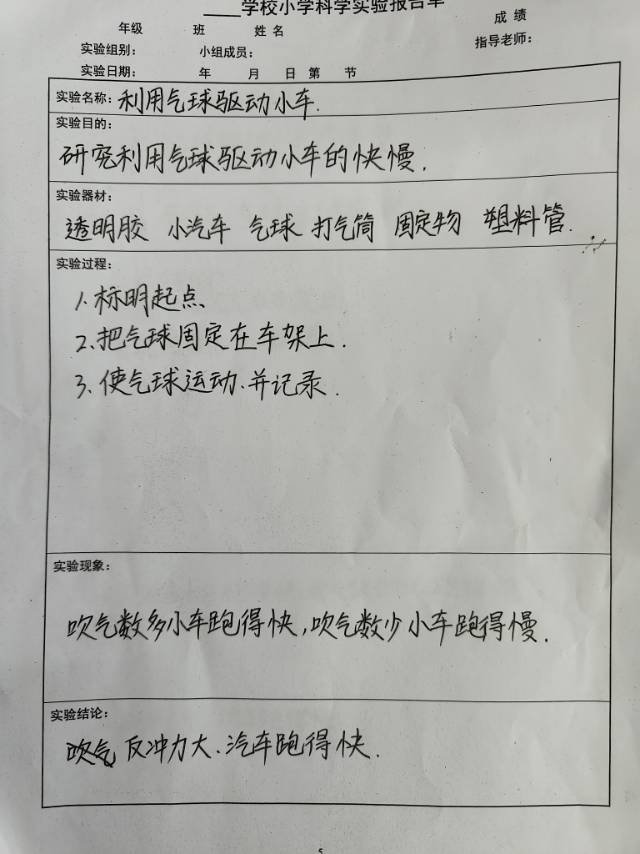 学校小学科学实验报告单
成 绩
年级 班 姓 名
指导老师：
实验组别： 小组成员：
实验日期： 年 月 日 第 节
实验名称：利用气球驱动小车.
实验目的：
研究利用气球驱动小车的快慢.
实验器材：
透明胶 小汽车 气球 打气筒 固定物 塑料管.
实验过程：
1.标明起点
2.把气球固定在车架上.
3.使气球运动、并记录.
实验现象：
吹气数多小车跑得快,吹气数少小车跑得慢.
实验结论：
吹气反冲力大、汽车跑得快.
5